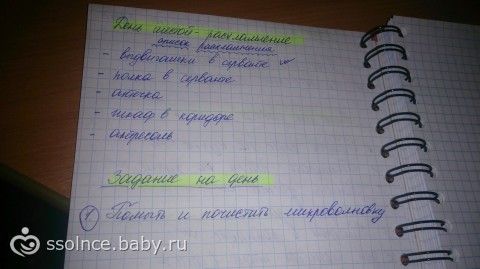 День шестой - расхламление
список расхламления
- выдвигашки в серванте ✓
- полка в серванте
- аптечка
- шкаф в коридоре
- антресоль
Задание на день
1 Помыть и почистить микроволновку
ssolnce.baby.ru